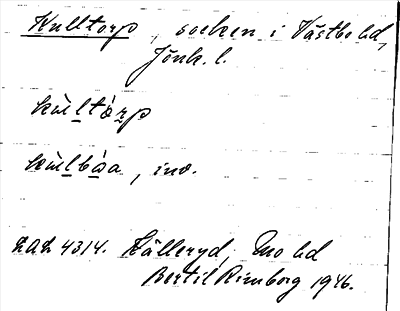 Kulltorp, socken i Västbo hd,
Jönk. l.
kùltàrp
kùlbàsa, inv.
LAL 4314. Källeryd, Mo hd
Bertil Rimborg 1946.